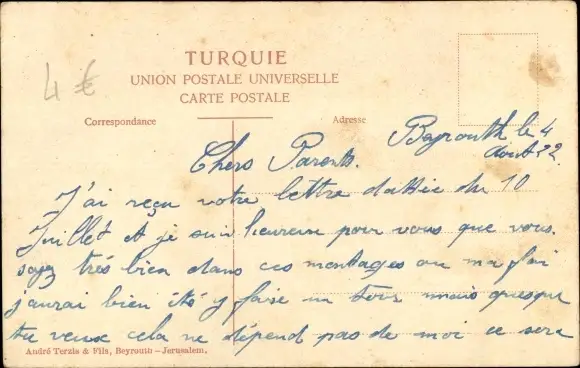 4 €
TURQUIE
UNION POSTALE UNIVERSELLE
CARTE POSTALE
Correspondance
Adresse
Beyrouth le 4
Août 22
Chers Parents.
J'ai reçu votre lettre dattée du 10
Juillet et je suis heureux pour vous que vous
soyez très bien dans ces montages ou ma foi
j'aurai bien été y faire un tour mais quesque
tu veux cela ne dépend pas de moi ce sera
André Terzis & Fils, Beyrouth — Jerusalem.